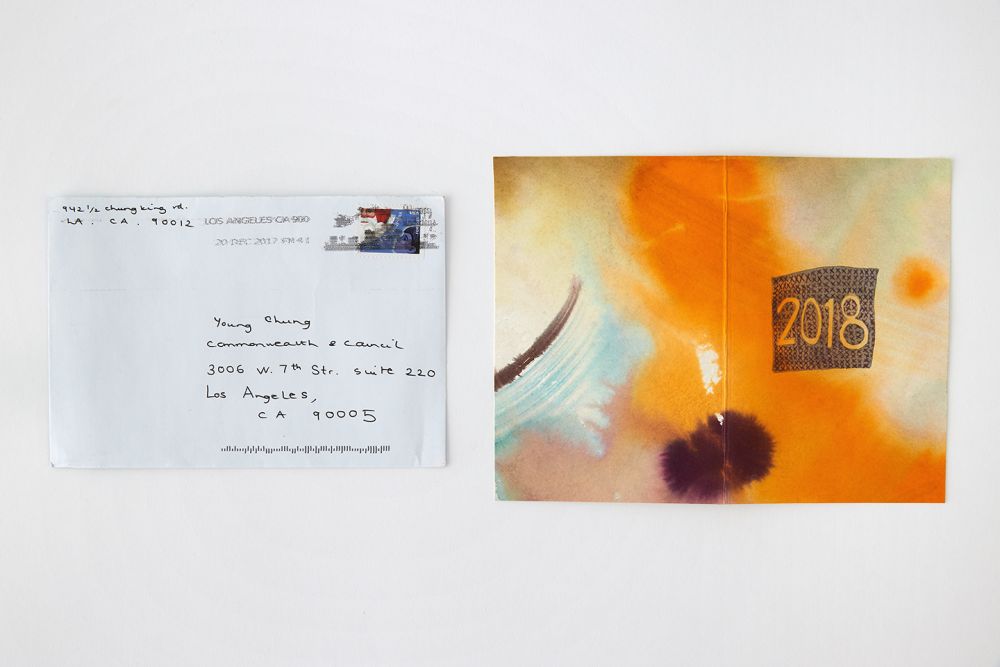 942 1/2 chungking rd.
LA. CA. 90012
LOS ANGELES CA 900
20 DEC 2017 PM 4 L
Young Chung
Commonwealth & Council
3006 W. 7th Str. suite 220
Los Angeles,
CA 90005
2018